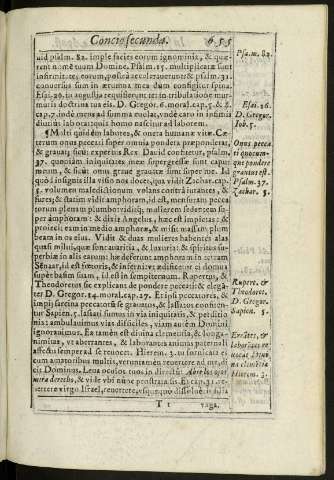 Concio secunda. 655
uid psalm. 82. imple facies eorum ignominia, & quæ-
rent nomē tuum Domine. Psalm. 15. multiplicatæ sunt
infirmitates eorum, posteà accelerauerunt: & psalm. 31.
conuersus sum in ærumna mea dum configitur spina.
Esai. 26. in angustia requisierunt te: in tribulatione mur-
muris doctrina tua eis. D. Gregor. 6. moral. cap. 5. & 8.
cap. 7. inde mercad summa euolat, vnde caro in infimis
diutius laborat: quia homo nascitur ad laborem.
¶ Multi quidem labores, & onera humanæ vitæ. Cæ-
terum onus peccati super omnia pondera præponderat,
& grauat: sicut expertus Rex Dauid confitetur, psalm.
37. quoniam iniquitates meæ supergressæ sunt caput
meum, & sicut onus graue grauatæ sunt super me. Id
quòd insignis illa visio nos docet, qua vidit Zachar. cap.
5. volumen maledictionum volans contra iurantes, &
fures; & statim vidit amphoram, id est, mensuram pecca
torum plenam plumbo: vidit; mulierem sedentem su-
per amphoram: & dixit Angelus, hæc est impietas: &
proiecit eam in medio amphoræ, & misit massam plum
beam in os eius. Vidit & duas mulieres habentes alas
quasi milui, quæ sunt auaritia, & luxuria: & spiritus su-
perbiæ in alis earum: hæ deferunt amphoram in terram
Senaar, id est fœtoris, & inferni: vt ædificetur ei domus
super basem suam, id est in sempiternum. Rupertus, &
Theodoretus sic explicant de pondere peccati: & elegā
ter D. Gregor. 14. moral. cap. 27. Etsi peccantes, &
impij sarcina peccati se grauatos, & lassatos confiten-
tur Sapien. 5. lassati sumus in via iniquitatis, & perditio
nis: ambulauimus vias difficiles, viam autem Domini
ignorauimus. Ea tamen est diuina clementia, & longa-
nimitas, vt aberrantes, & laborantes animas paternali
affectu semper ad se reuocet. Hierem. 3. tu fornicata es
cum amatoribus multis, veruntamen reuertere ad me, di
cit Dominus. Leua oculos tuos in directū: Abre los ojos,
mira derecho, & vide vbi nūc prostrata sis. Et cap. 31. re-
uertere virgo Israel, reuertere, vsquequo dissolueris filia
T 1 vaga.
Psa.m. 82.
Esai. 26.
D. Gregor.
Iob. 5.
Onus pecca
ti quocum-
que pondere
grauius est.
Psalm. 37.
Zachar. 5.
Rupert. &
Theodoret.
D. Gregor.
Sapien. 5.
Errātes, &
laborātes re
uocat diuina
clemētia
Hierem. 3.